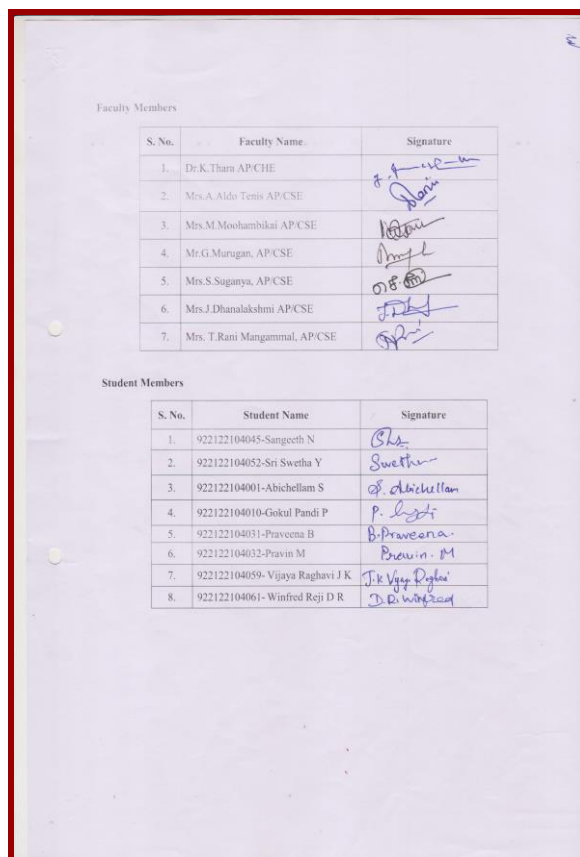 Faculty Members
S. No. Faculty Name Signature
1. Dr.K.Thara AP/CHE
2. Mrs.A.Aldo Tenis AP/CSE
3. Mrs.M.Moohambikai AP/CSE
4. Mr.G.Murugan, AP/CSE
5. Mrs.S.Suganya, AP/CSE
6. Mrs.J.Dhanalakshmi AP/CSE
7. Mrs. T.Rani Mangammal, AP/CSE
Student Members
S. No. Student Name Signature
1. 922122104045-Sangeeth N
2. 922122104052-Sri Swetha Y Swetha
3. 922122104001-Abichellam S S. Abichellam
4. 922122104010-Gokul Pandi P P.
5. 922122104031-Praveena B B.Praveena.
6. 922122104032-Pravin M Prewin. M
7. 922122104059- Vijaya Raghavi J K J.K Vijay Raghavi
8. 922122104061- Winfred Reji D R D.R.Winfred